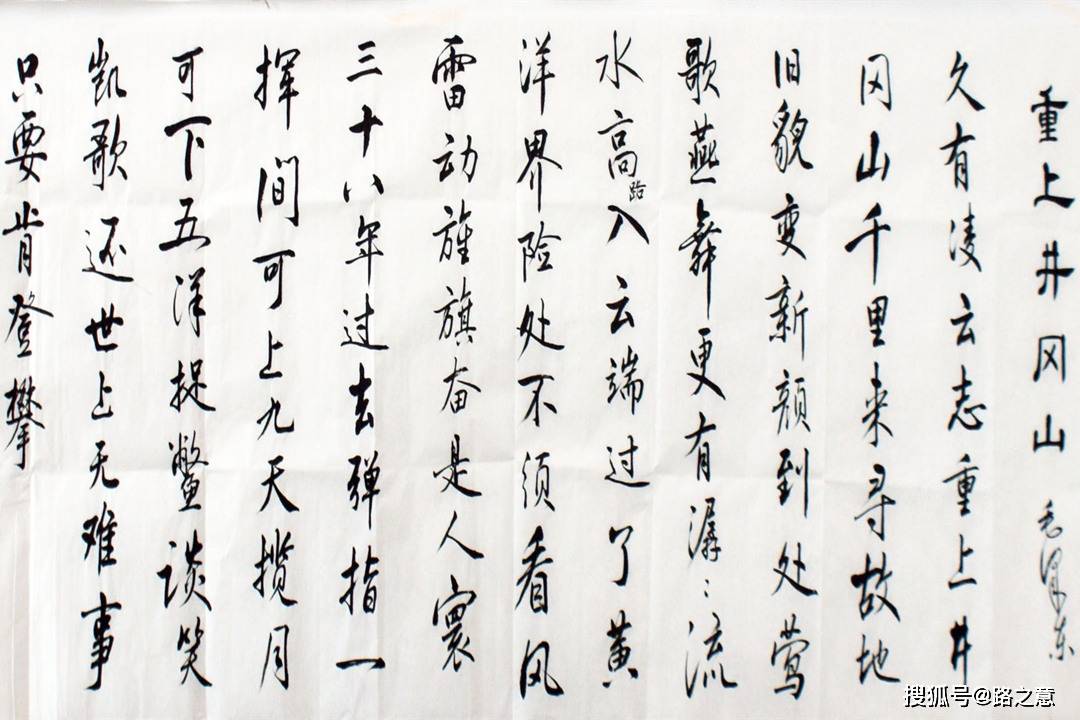 重上井冈山 毛泽东
久有凌云志重上井
冈山千里来寻故地
旧貌变新颜到处莺
歌燕舞更有潺〻流
水高路入云端过了黄
洋界险处不须看风
雷动旌旗奋是人寰
三十八年过去弹指一
挥间可上九天揽月
可下五洋捉鳖谈笑
凯歌还世上无难事
只要肯登攀
搜狐号@路之意